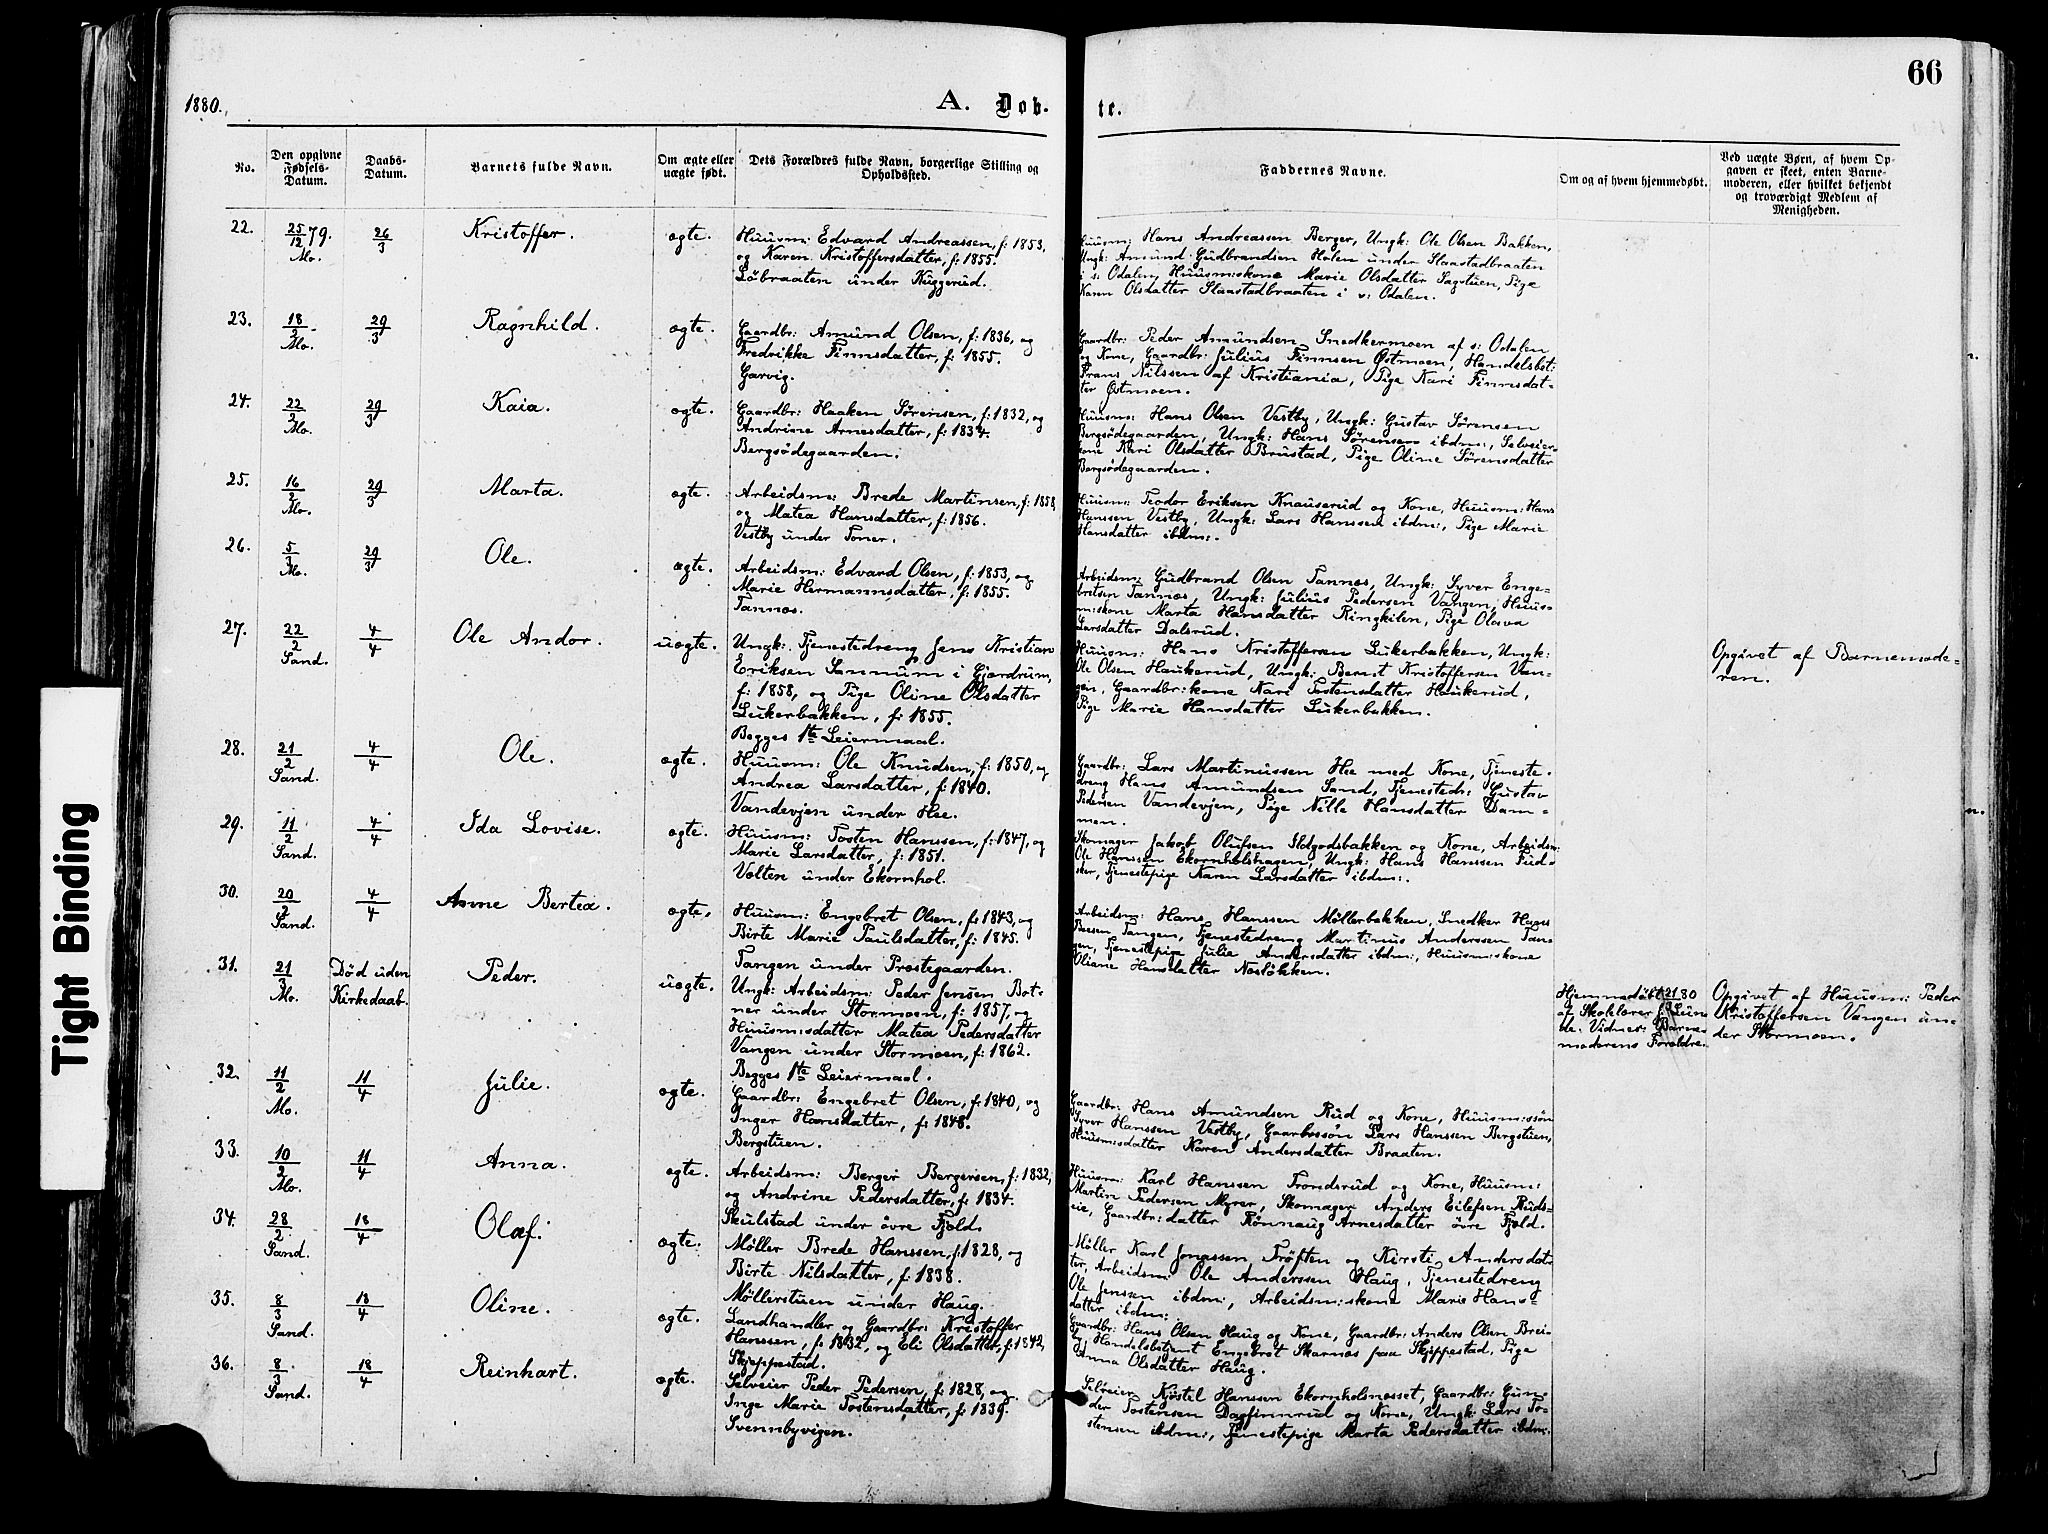 66
1880.
A. Døb-
te.
No.
Den opgivne
Fødsels-
Datum.
Daabs-
Datum.
Barnets fulde Navn.
Om ægte eller
uægte født.
Dets Forældres fulde Navn, borgerlige Stilling og
Opholdssted.
Faddernes Navne.
Om og af hvem hjemmedøbt.
Ved uægte Børn, af hvem Op-
gaven er skeet, enten Barne-
moderen, eller hvilket bekjendt
og troværdigt Medlem af
Menigheden.
22.
25/12 79.
Mo.
26/3
Kristoffer.
ægte.
Huusm: Edvard Andreassen, f: 1853,
og Karen Kristoffersdatter, f: 1855.
Løbraaten under Kuggerud.
Huusm: Hans Andreassen Berger, Ungk: Ole Olsen Bakken,
Ungk: Amund Gudbrandsen Holen under Slaastadbraaten
i s: Odalen, Huusm:kone Marie Olsdatter Sagstuen, Pige
Karen Olsdatter Slaastadbraaten i s: Odalen.
23.
18/2
Mo.
29/3
Ragnhild.
ægte.
Gaardbr: Amund Olsen, f: 1836, og
Fredrikke Finnsdatter, f: 1855.
Garvig.
Gaardbr: Peder Amundsen Snedkermoen af s: Odalen
og Kone, Gaardbr: Julius Finnsen Østmoen, Handelsbet:
Frans Nilssen af Kristiania, Pige Kari Finnsdat-
ter Østmoen.
24.
22/2
Mo.
29/3
Kaia.
ægte.
Gaardbr: Haaken Sørensen, f: 1832, og
Andrine Arnesdatter, f: 1834.
Bergsødegaarden.
Huusm: Hans Olsen Vestby, Ungk: Gustav Sørensen
Bergsødegaarden, Ungk: Hans Sørensen ibdm:, Selveier-
kone Kari Olsdatter Brustad, Pige Oline Sørensdatter
Bergsødegaarden.
25.
16/2
Mo.
29/3
Marta.
ægte.
Arbeidsm: Brede Martinsen, f: 1858,
og Matea Hansdatter, f: 1856.
Vestby under Toner.
Huusm: Teodor Eriksen Knauserud og Kone, Huusm: Hans
Hanssen Vestby, Ungk: Lars Hanssen ibdm:, Pige Marie
Hansdatter ibdm:.
26.
5/3
Mo.
29/3
Ole.
ægte.
Arbeidsm: Edvard Olsen, f: 1853, og
Marie Hermannsdatter, f: 1855.
Tannæs.
Arbeidsm: Gudbrand Olsen Tannæs, Ungk: Syver Enge-
bretsen Tannæs, Ungk: Julius Pedersen Vangen, Huus-
m:kone Marta Hansdatter Ringkilen, Pige Olava
Larsdatter Dalsrud.
27.
22/2
Sand.
4/4
Ole Andor.
uægte.
Ungk: Tjenestedreng Jens Kristian
Eriksen Sannum i Gjærdrum,
f: 1858, og Pige Oline Olsdatter
Lukerbakken, f: 1855.
Begges 1ste Leiermaal.
Huusm: Hans Kristoffersen Lukerbakken, Ungk:
Ole Olsen Haukerud, Ungk: Bernt Kristoffersen Van-
gen, Gaardbr:kone Kari Tostensdatter Haukerud,
Pige Marie Hansdatter Lukerbakken.
Opgivet af Barnemode-
ren.
28.
21/2
Sand.
4/4
Ole.
ægte.
Huusm: Ole Knudsen, f: 1850, og
Andrea Larsdatter, f: 1840.
Vandevjen under Hee.
Gaardbr: Lars Martinussen Hee med Kone, Tjeneste-
dreng Hans Amundsen Sand, Tjenestedr: Gustav
Pedersen Vandevjen, Pige Nille Hansdatter Dam-
men.
29.
11/2
Sand.
4/4
Ida Lovise.
ægte.
Huusm: Tosten Hanssen, f: 1847, og
Marie Larsdatter, f: 1851.
Volten under Ekornhol.
Skomager Jakob Olufsen Ildgodsbakken og Kone, Arbeidsm:
Ole Hanssen Ekornholshagen, Ungk: Hans Hanssen Fud-
sker, Tjenestepige Karen Larsdatter ibdm:.
30.
20/2
Sand.
4/4
Anne Bertea.
ægte.
Huusm: Engebret Olsen, f: 1843, og
Birte Marie Paulsdatter, f: 1845.
Tangen under Præstegaarden.
Arbeidsm: Hans Hanssen Møllerbakken, Snedker Hans
Beesen Tangen, Tjenestedreng Martinus Anderssen Tan-
gen, Tjenestepige Julie Andersdatter ibdm:, Huusm:kone
Oliane Hansdatter Nesløkken.
31.
21/3
Mo.
Død uden
Kirkedaab.
Peder.
uægte.
Ungk: Arbeidsm: Peder Jensen Bot-
ner under Stormoen, f: 1857, og
Huusm:datter Matea Pedersdatter
Vangen under Stormoen, f: 1862.
Begges 1ste Leiermaal.
Hjemmedøbt 21/3 80
af Skolelærer Lun
de. Vidner: Barne-
moderens Forældre.
Opgivet af Huusm: Peder
Kristoffersen Vangen un-
der Stormoen.
32.
11/2
Mo.
11/4
Julie.
ægte.
Gaardbr: Engebret Olsen, f: 1840, og
Inger Hansdatter, f: 1848.
Bergstuen.
Gaardbr: Hans Amundsen Rud og Kone, Huusm:søn
Syver Hanssen Vestby, Gaarbrsøn Lars Hanssen Bergstuen,
Huusm:datter Karen Andersdatter Braaten.
33.
10/2
Mo.
11/4
Anna.
ægte.
Arbeidsm: Berger Bergersen, f: 1832,
og Andrine Pedersdatter, f: 1834.
Skulstad under øvre Fjeld.
Huusm: Karl Hanssen Trondsrud og Kone, Huusm:
Martin Pedersen Myrer, Skomager Anders Eilefsen Ruds-
eie, Gaardbr:datter Rønnaug Arnesdatter øvre Fjeld.
34.
28/2
Sand.
18/4
Olaf.
ægte.
Møller Brede Hanssen, f: 1828, og
Birte Nilsdatter, f: 1838.
Møllerstuen under Haug.
Møller Karl Jonassen Trøften og Kirsti Andersdat-
ter, Arbeidsm: Ole Anderssen Haug, Tjenestedreng
Ole Jensen ibdm:, Arbeidsm:kone Marie Hans-
datter ibdm:
35.
8/3
Sand.
18/4
Oline.
ægte.
Landhandler og Gaardbr: Kristoffer
Hanssen, f: 1832, og Eli Olsdatter, f: 1842,
Skjeppestad.
Gaardbr: Hans Olsen Haug og Kone, Gaardbr: Anders Olsen Brei-
by, Handelsbetjent Engebret Skarnæs paa Skjeppestad, Pige
Anna Olsdatter Haug.
36.
8/3
Sand.
18/4
Reinhart.
ægte.
Selveier Peder Pedersen, f: 1828, og
Inge Marie Tostensdatter, f: 1839.
Svennbyvigen.
Selveier Kjøstil Hanssen Ekornholsnæsset, Gaardbr: Gun-
der Tostensen Dagfinnrud og Kone, Ungk: Lars To-
stensen ibdm:, Tjenestepige Marta Pedersdatter ibdm:
Tight Binding